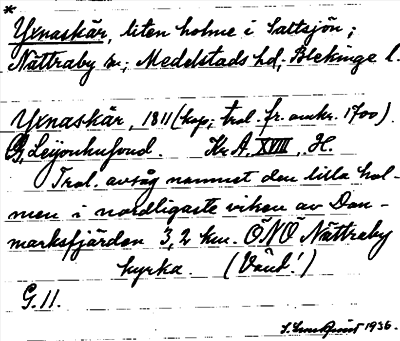 *
Yxnaskär, liten holme i Saltsjön;
Nättraby sn.; Medelstads hd; Blekinge l.
Yxnaskär, 1811 (kop; trol. fr. omkr. 1700).
G. Leijonhufvud. Kr.A. XVIII, H.
Trol. avsåg namnet den lilla hol-
men i nordligaste viken av Dan-
marksfjärden 3,2 km. ÖNÖ Nättraby
kyrka. (Vänd!)
G. 11.
1936.